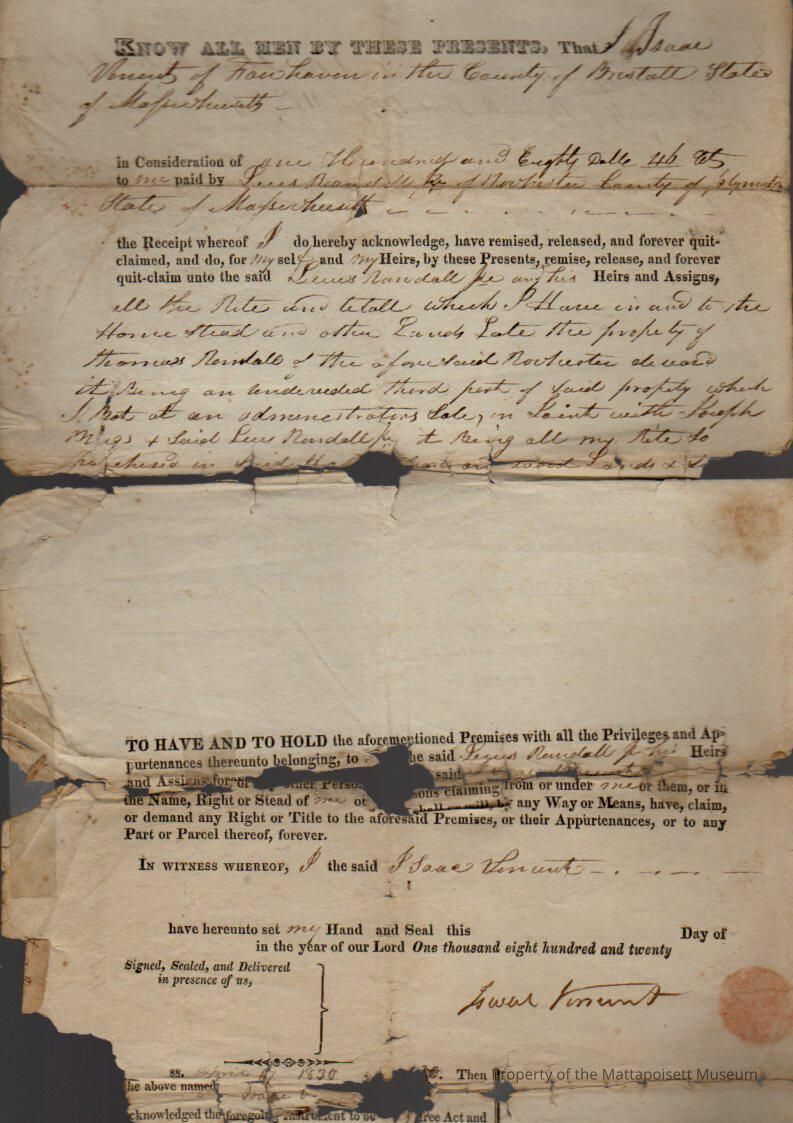 KNOW ALL MEN BY THESE PRESENTS, That I Isaac
Vincent of Fairhaven in the County of Bristoll State
of Massachusetts
in Consideration of one Hundred and Eighty Dolls 46 Cts
to me paid by Randall Jr of Rochester County of Plymouth
State of Massachusetts
the Receipt whereof I do hereby acknowledge, have remised, released, and forever quit-
claimed, and do, for my self and my Heirs, by these Presents, remise, release, and forever
quit-claim unto the said Randall Jr his Heirs and Assigns,
all the Rite and which I Have in and to the
Home stead and other Lands Late the property of
thomas Randall of the afore said Rochester
it Being an third part of said property which
I Bot at an administrators Sale, in Joint with Joseph
& Said Randall Jr it Being all my Rite So
in said Lands &
TO HAVE AND TO HOLD the aforementioned Premises with all the Privileges and Ap-
purtenances thereunto belonging, to he said Randall Jr his Heirs
and Assigns for other Person said
sons claiming from or under me or them, or in
the Name, Right or Stead of me or shall or will, by any Way or Means, have, claim,
or demand any Right or Title to the aforesaid Premises, or their Appurtenances, or to any
Part or Parcel thereof, forever.
IN WITNESS WHEREOF, I the said Isaac Vincent
have hereunto set my Hand and Seal this Day of
in the year of our Lord One thousand eight hundred and twenty
Signed, Sealed, and Delivered
in presence of us,
Isaac Vincent
ss. 1830 Then
the above named Isaac
cknowledged the foregoing Instrument to be ree Act and
Property of the Mattapoisett Museum